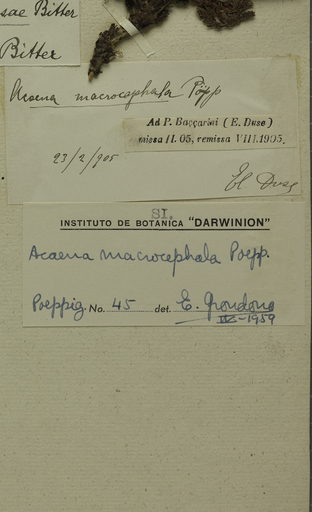 sae Bitter
Bitter
Acaena macrocephala Pöpp
Ad P. Baccarini (E. Duse)
missa II. 05, remissa VIII.1905.
23/2/905
El Duse
SI.
INSTITUTO DE BOTÁNICA "DARWINION"
Acaena macrocephala Poepp.
Poeppig No. 45 det. E. Grondona
IX-1959